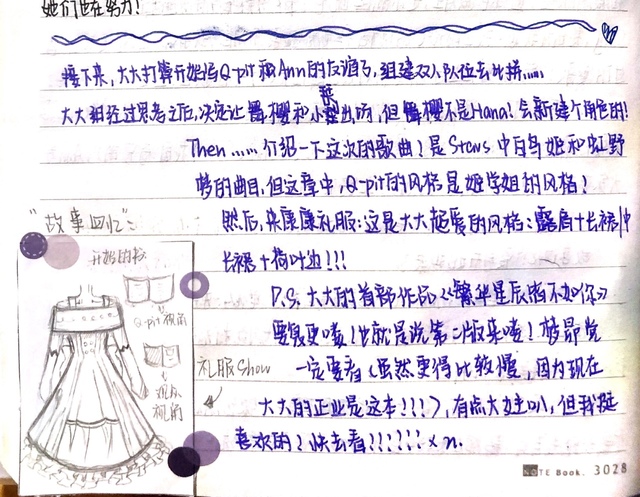 她们也在努力!
接下来,大大打算开始写Q-pit和Ann的友谊了,组建双人队伍去比拼……
大大我经过思考之后,决定让舞樱和小 出场,但舞樱不是Hana!会新建个角色的!
Then……介绍一下这次的歌曲!是Stars中白鸟姬和虹野
梦的曲目,但这章中,Q-pit的风格是姬学姐的风格!
"故事回忆":
然后,来康康礼服:这是大大超爱的风格:露肩+长裙+中
长裙+荷叶边!!!
开始的书
Q-pit视角
观众视角
礼服Show
P.S. 大大的首部作品《繁华星辰皆不如你》
要复更喽!也就是说第二版来喽!梦昂党
一定要看(虽然更得比较慢,因为现在
大大的正业是这本!!!),有点大女主叭,但我挺
喜欢的!快去看!!!!!!×n.
NOTE Book. 3028